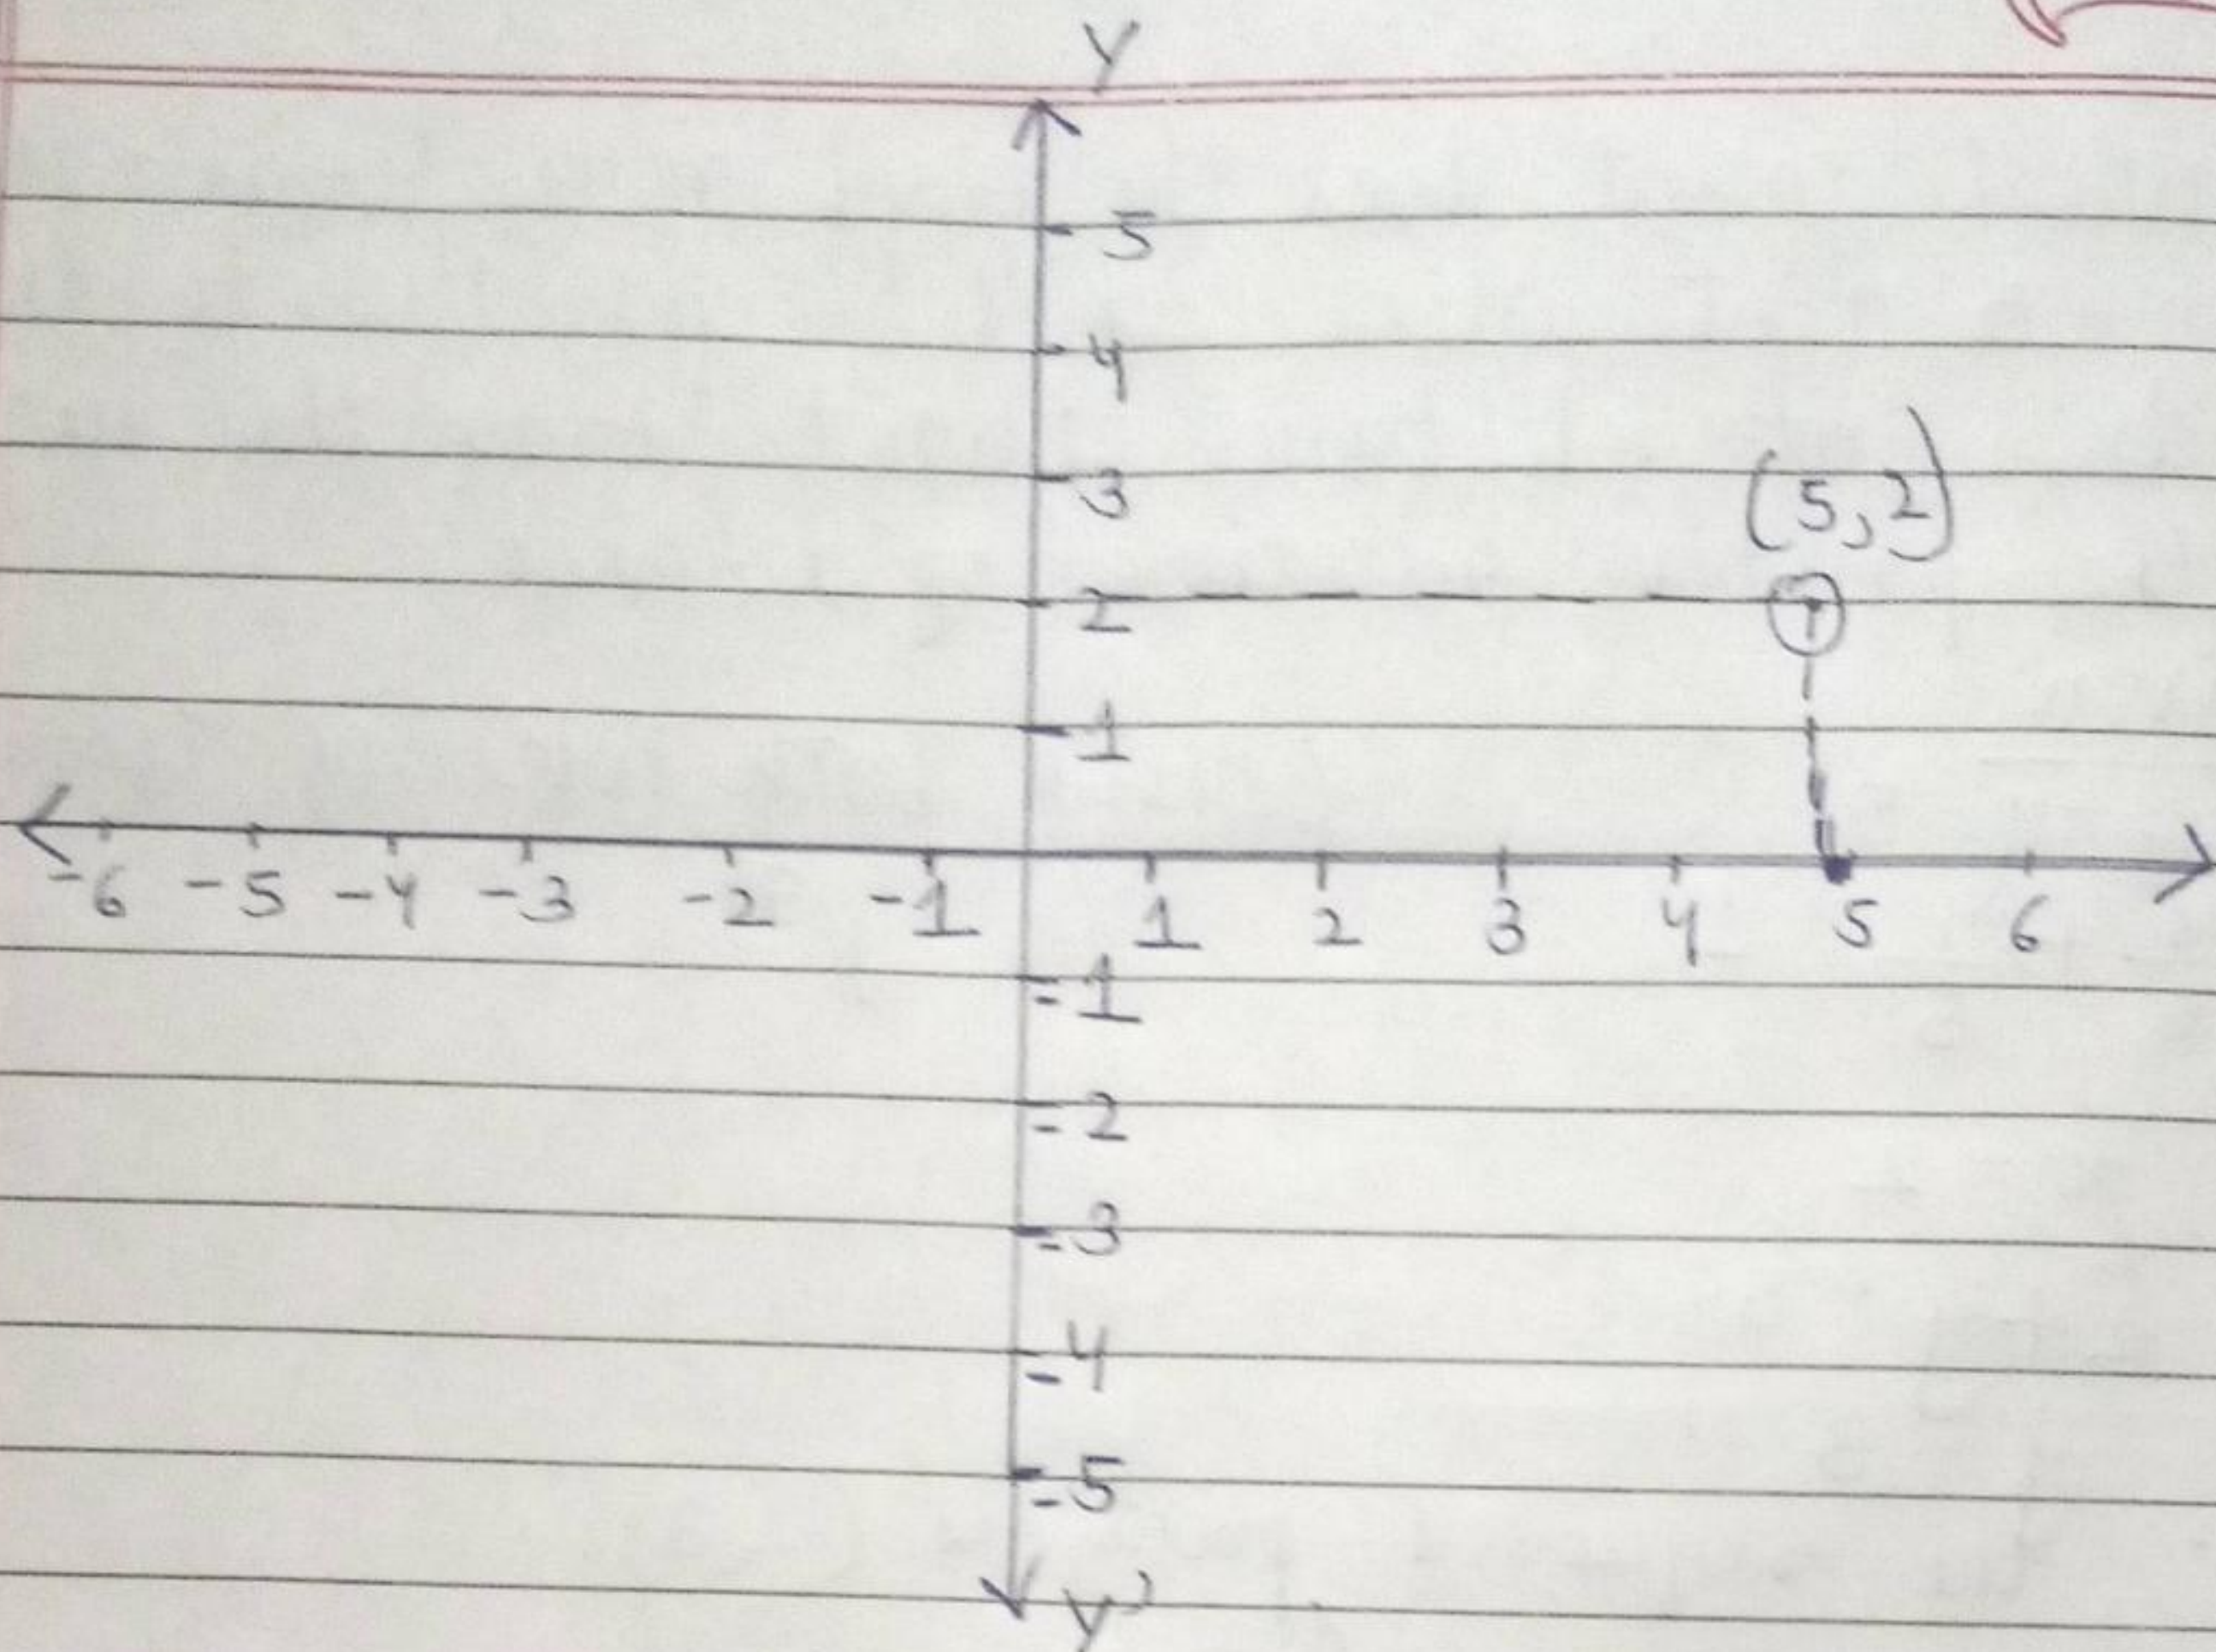 Y
5
4
3
(5,2)
2
1
-6 -5 -4 -3 -2 -1 1 2 3 4 5 6
-1
-2
-3
-4
-5
Y'